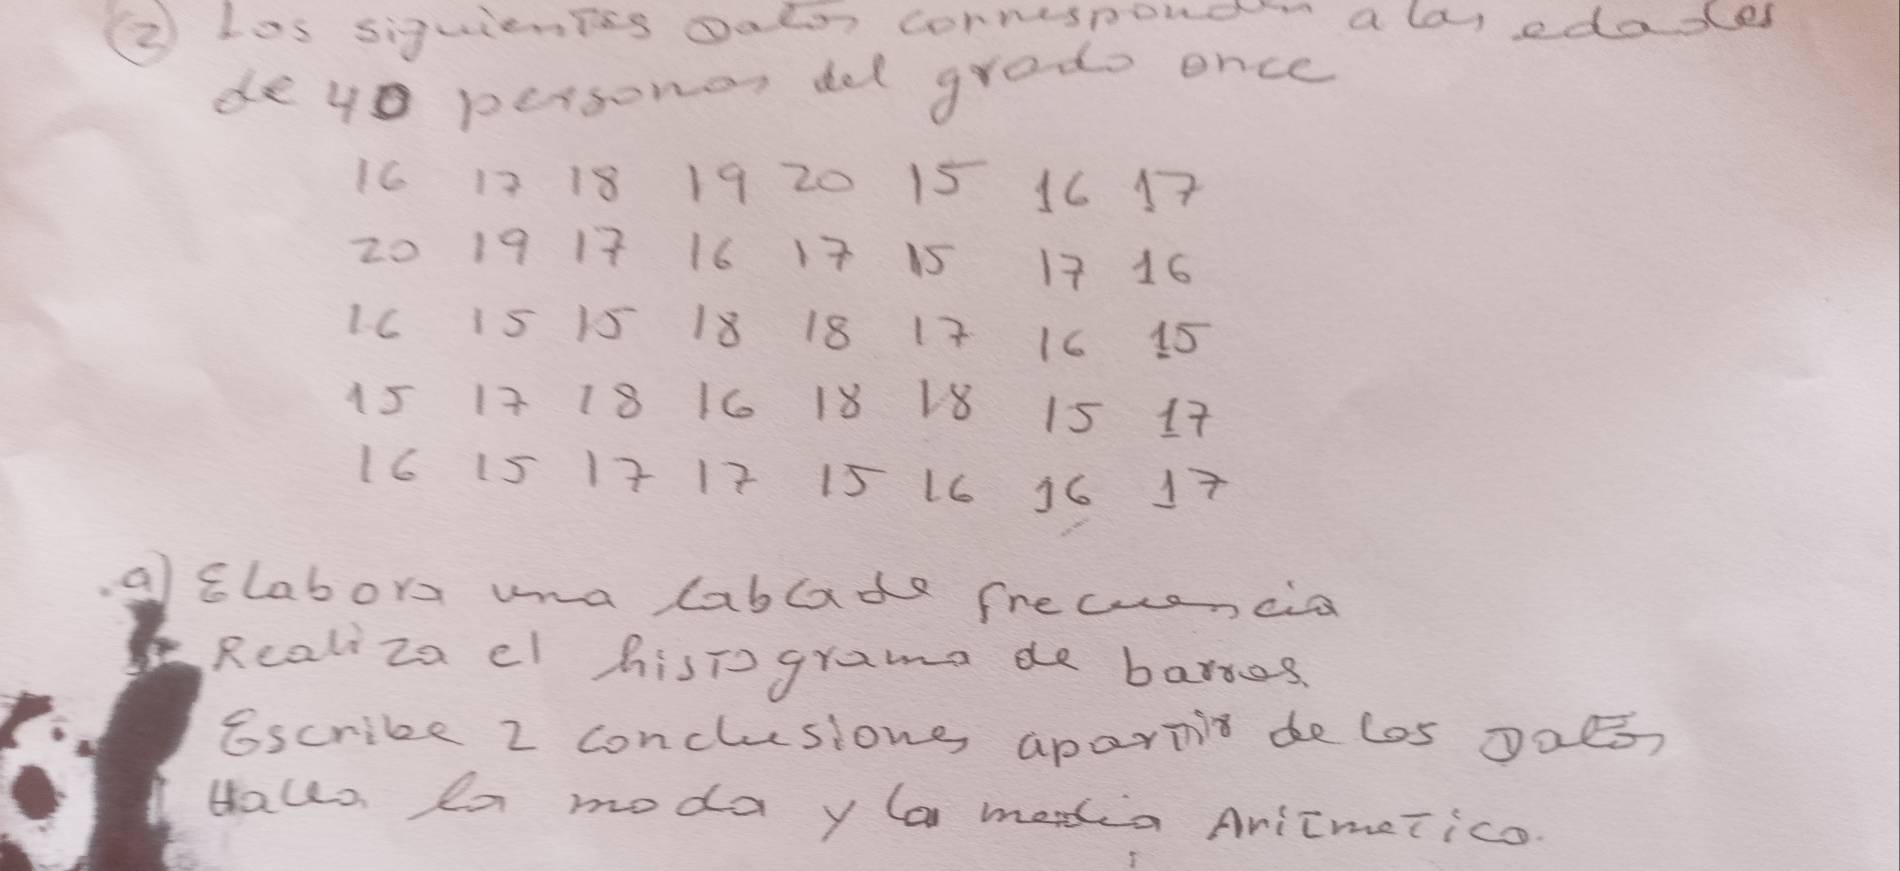 2) Los siguientes Datos corresponden a las edades
de 40 personas del grado once
16 17 18 19 20 15 16 17
20 19 17 16 17 15 17 16
16 15 15 18 18 17 16 15
15 17 18 16 18 18 15 17
16 15 17 17 15 16 16 17
a) Elabora una tabla de frecuencia
Realiza el histograma de barras.
Escribe 2 conclusiones apartir de los Datos
Halla la moda y la media Aritmetica.